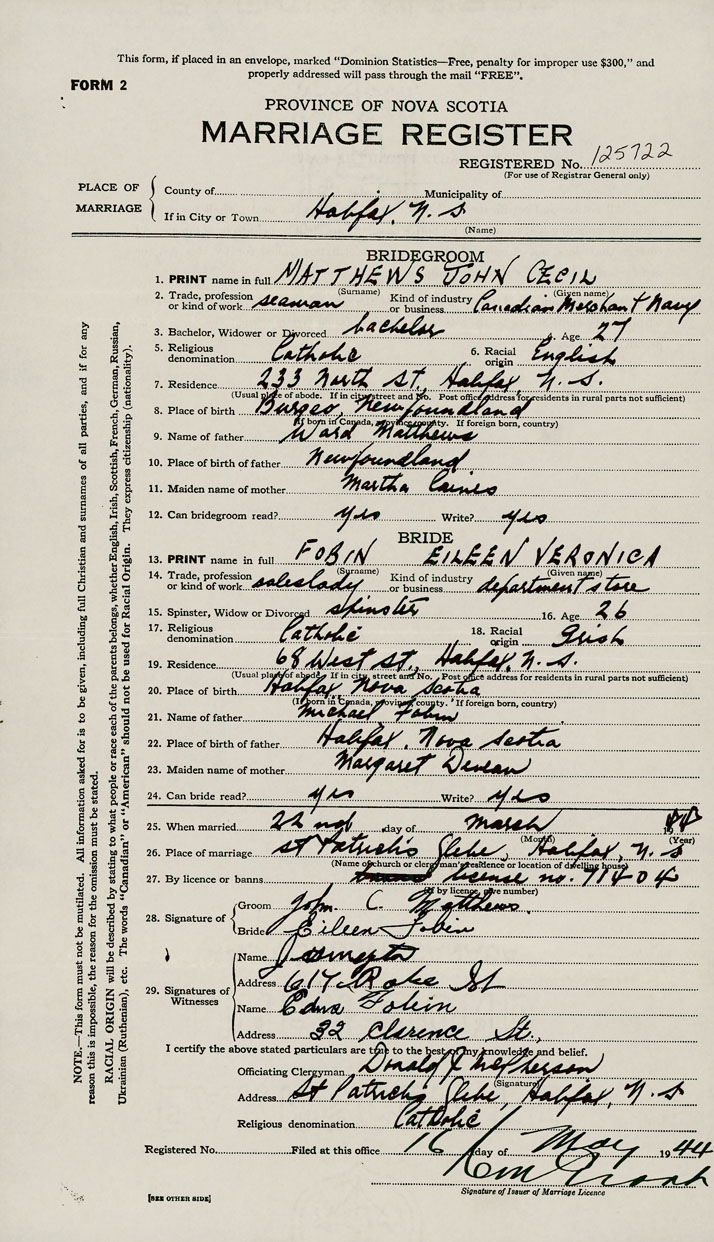 This form, if placed in an envelope, marked "Dominion Statistics—Free, penalty for improper use $300," and
properly addressed will pass through the mail "FREE".
FORM 2
PROVINCE OF NOVA SCOTIA
MARRIAGE REGISTER
REGISTERED No. 125722
(For use of Registrar General only)
PLACE OF MARRIAGE
County of Municipality of
If in City or Town Halifax, N. S
(Name)
BRIDEGROOM
1. PRINT name in full MATTHEWS JOHN CECIL
(Surname) (Given name)
2. Trade, profession or kind of work seaman Kind of industry or business Canadian Merchant Navy
3. Bachelor, Widower or Divorced bachelor 4. Age 27
5. Religious denomination Catholic 6. Racial origin English
7. Residence 233 North St., Halifax, N. S.
(Usual place of abode. If in city street and No. Post office address for residents in rural parts not sufficient)
8. Place of birth Burgeo, Newfoundland
(If born in Canada, province, county. If foreign born, country)
9. Name of father Ward Matthews
10. Place of birth of father Newfoundland
11. Maiden name of mother Martha
12. Can bridegroom read? yes Write? yes
BRIDE
13. PRINT name in full TOBIN EILEEN VERONICA
(Surname) (Given name)
14. Trade, profession or kind of work saleslady Kind of industry or business department store
15. Spinster, Widow or Divorced spinster 16. Age 26
17. Religious denomination Catholic 18. Racial origin Irish
19. Residence 68 West St., Halifax, N. S.
(Usual place of abode. If in city, street and No. Post office address for residents in rural parts not sufficient)
20. Place of birth Halifax Nova Scotia
(If born in Canada, province, county. If foreign born, country)
21. Name of father Michael Tobin
22. Place of birth of father Halifax, Nova Scotia
23. Maiden name of mother Margaret
24. Can bride read? yes Write? yes
25. When married 22nd day of March 19 44
(Month) (Year)
26. Place of marriage St Patrick's Glebe, Halifax, N. S
(Name of church or clergyman's residence or location of dwelling house)
27. By licence or banns license no. 71404
(If by licence, give number)
28. Signature of Groom John C. Matthews
Bride Eileen Tobin
29. Signatures of Witnesses
Name
Address 617 St
Name Edna Tobin
Address 32 Clarence St.,
I certify the above stated particulars are true to the best of my knowledge and belief.
Officiating Clergyman Donald J McPherson
(Signature)
Address St Patrick's Glebe, Halifax, N. S
Religious denomination Catholic
Registered No. Filed at this office 16 day of May 1944
Signature of Issuer of Marriage Licence
[SEE OTHER SIDE]
NOTE.—This form must not be mutilated. All information asked for is to be given, including full Christian and surnames of all parties, and if for any
reason this is impossible, the reason for the omission must be stated.
RACIAL ORIGIN will be described by stating to what people or race each of the parents belongs, whether English, Irish, Scottish, French, German, Russian,
Ukrainian (Ruthenian), etc. The words "Canadian" or "American" should not be used for Racial Origin. They express citizenship (nationality).